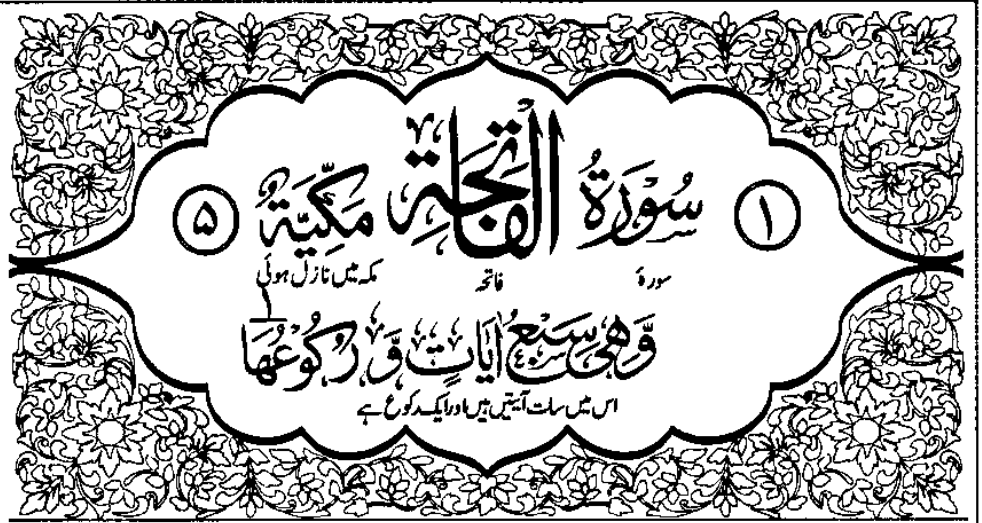 ۱ سُوْرَةُ الْفَاتِحَةِ مَكِّيَّةٌ ۵
سورۂ فاتحہ مکہ میں نازل ہوئی
وَّهِیَ سَبْعُ اٰیَاتٍ وَّ رُكُوْعُهَا ١
اس میں سات آیتیں ہیں اور ایک رکوع ہے